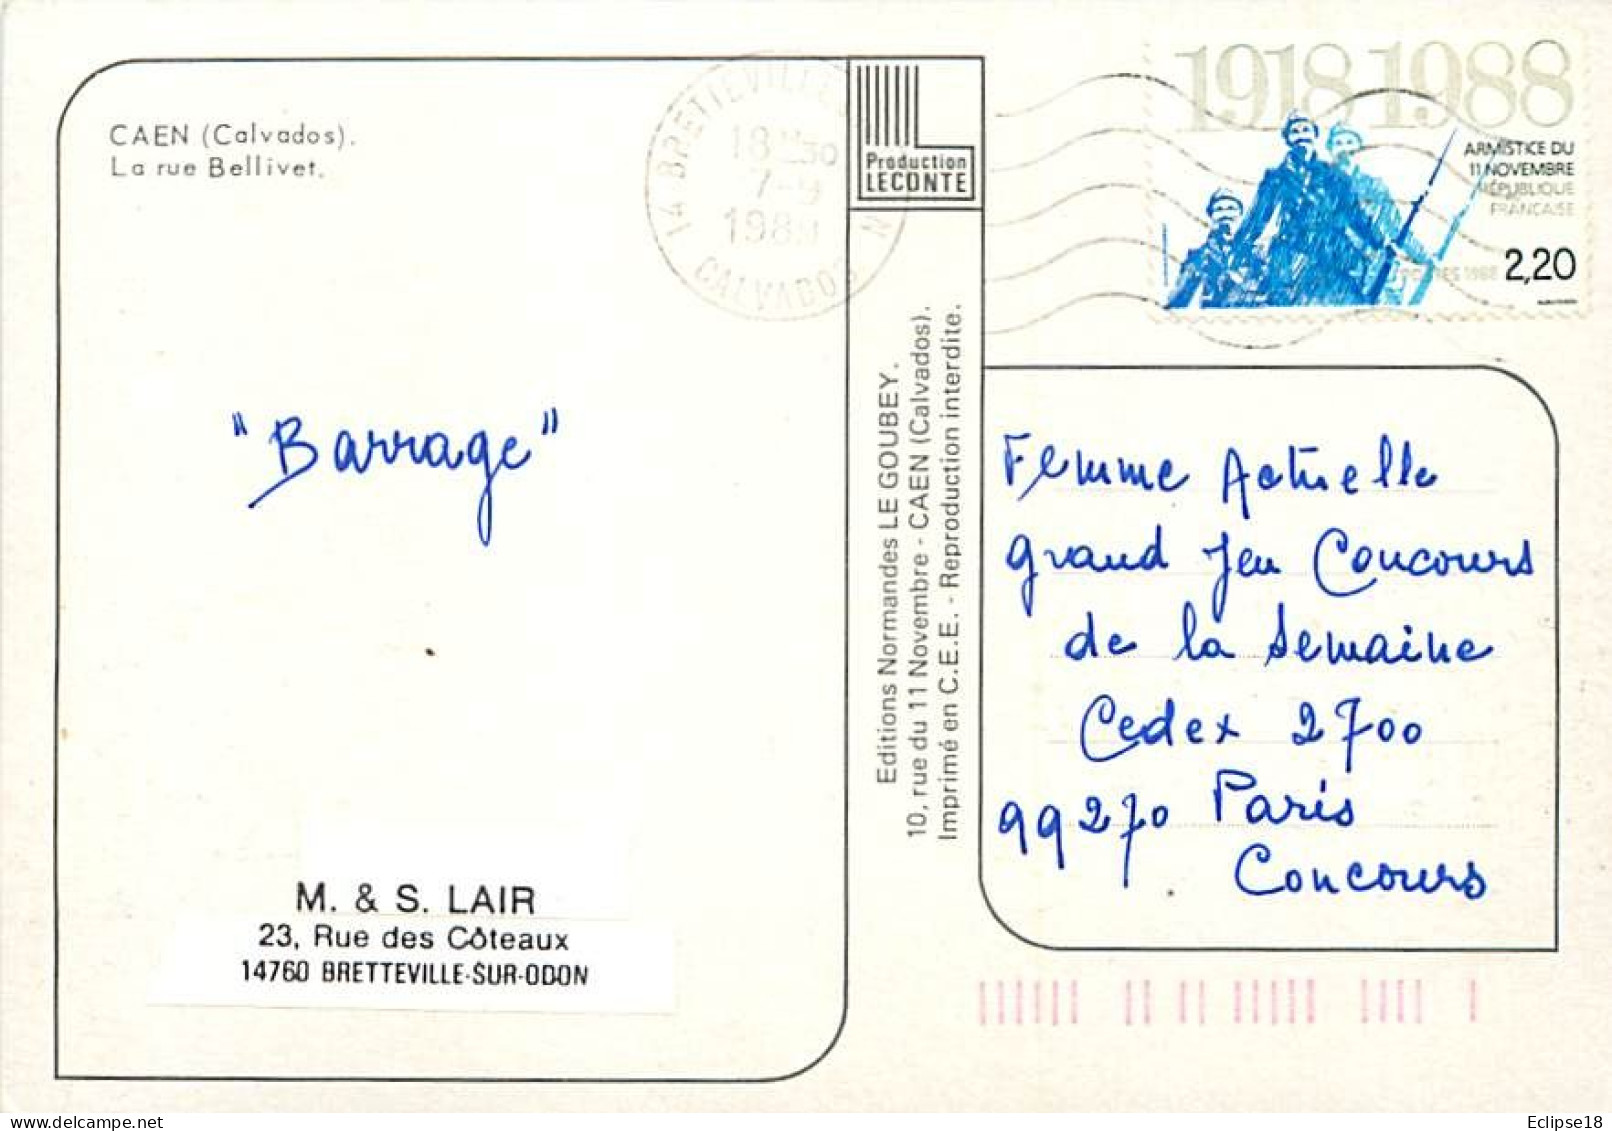 CAEN (Calvados).
La rue Bellivet.
"Barrage"
M. & S. LAIR
23, Rue des Côteaux
14760 BRETTEVILLE-SUR-ODON
14 BRETTEVILLE
18 H30
7-9
CALVADOS
Production
LECONTE
Editions Normandes LE GOUBEY.
10, rue du 11 Novembre - CAEN (Calvados).
Imprimé en C.E.E. - Reproduction interdite.
1918 1988
ARMISTICE DU
11 NOVEMBRE
RÉPUBLIQUE
FRANÇAISE
POSTES 1988 2,20
Femme Actuelle
grand Jeu Concours
de la semaine
Cedex 2700
99270 Paris
Concours
Eclipse18